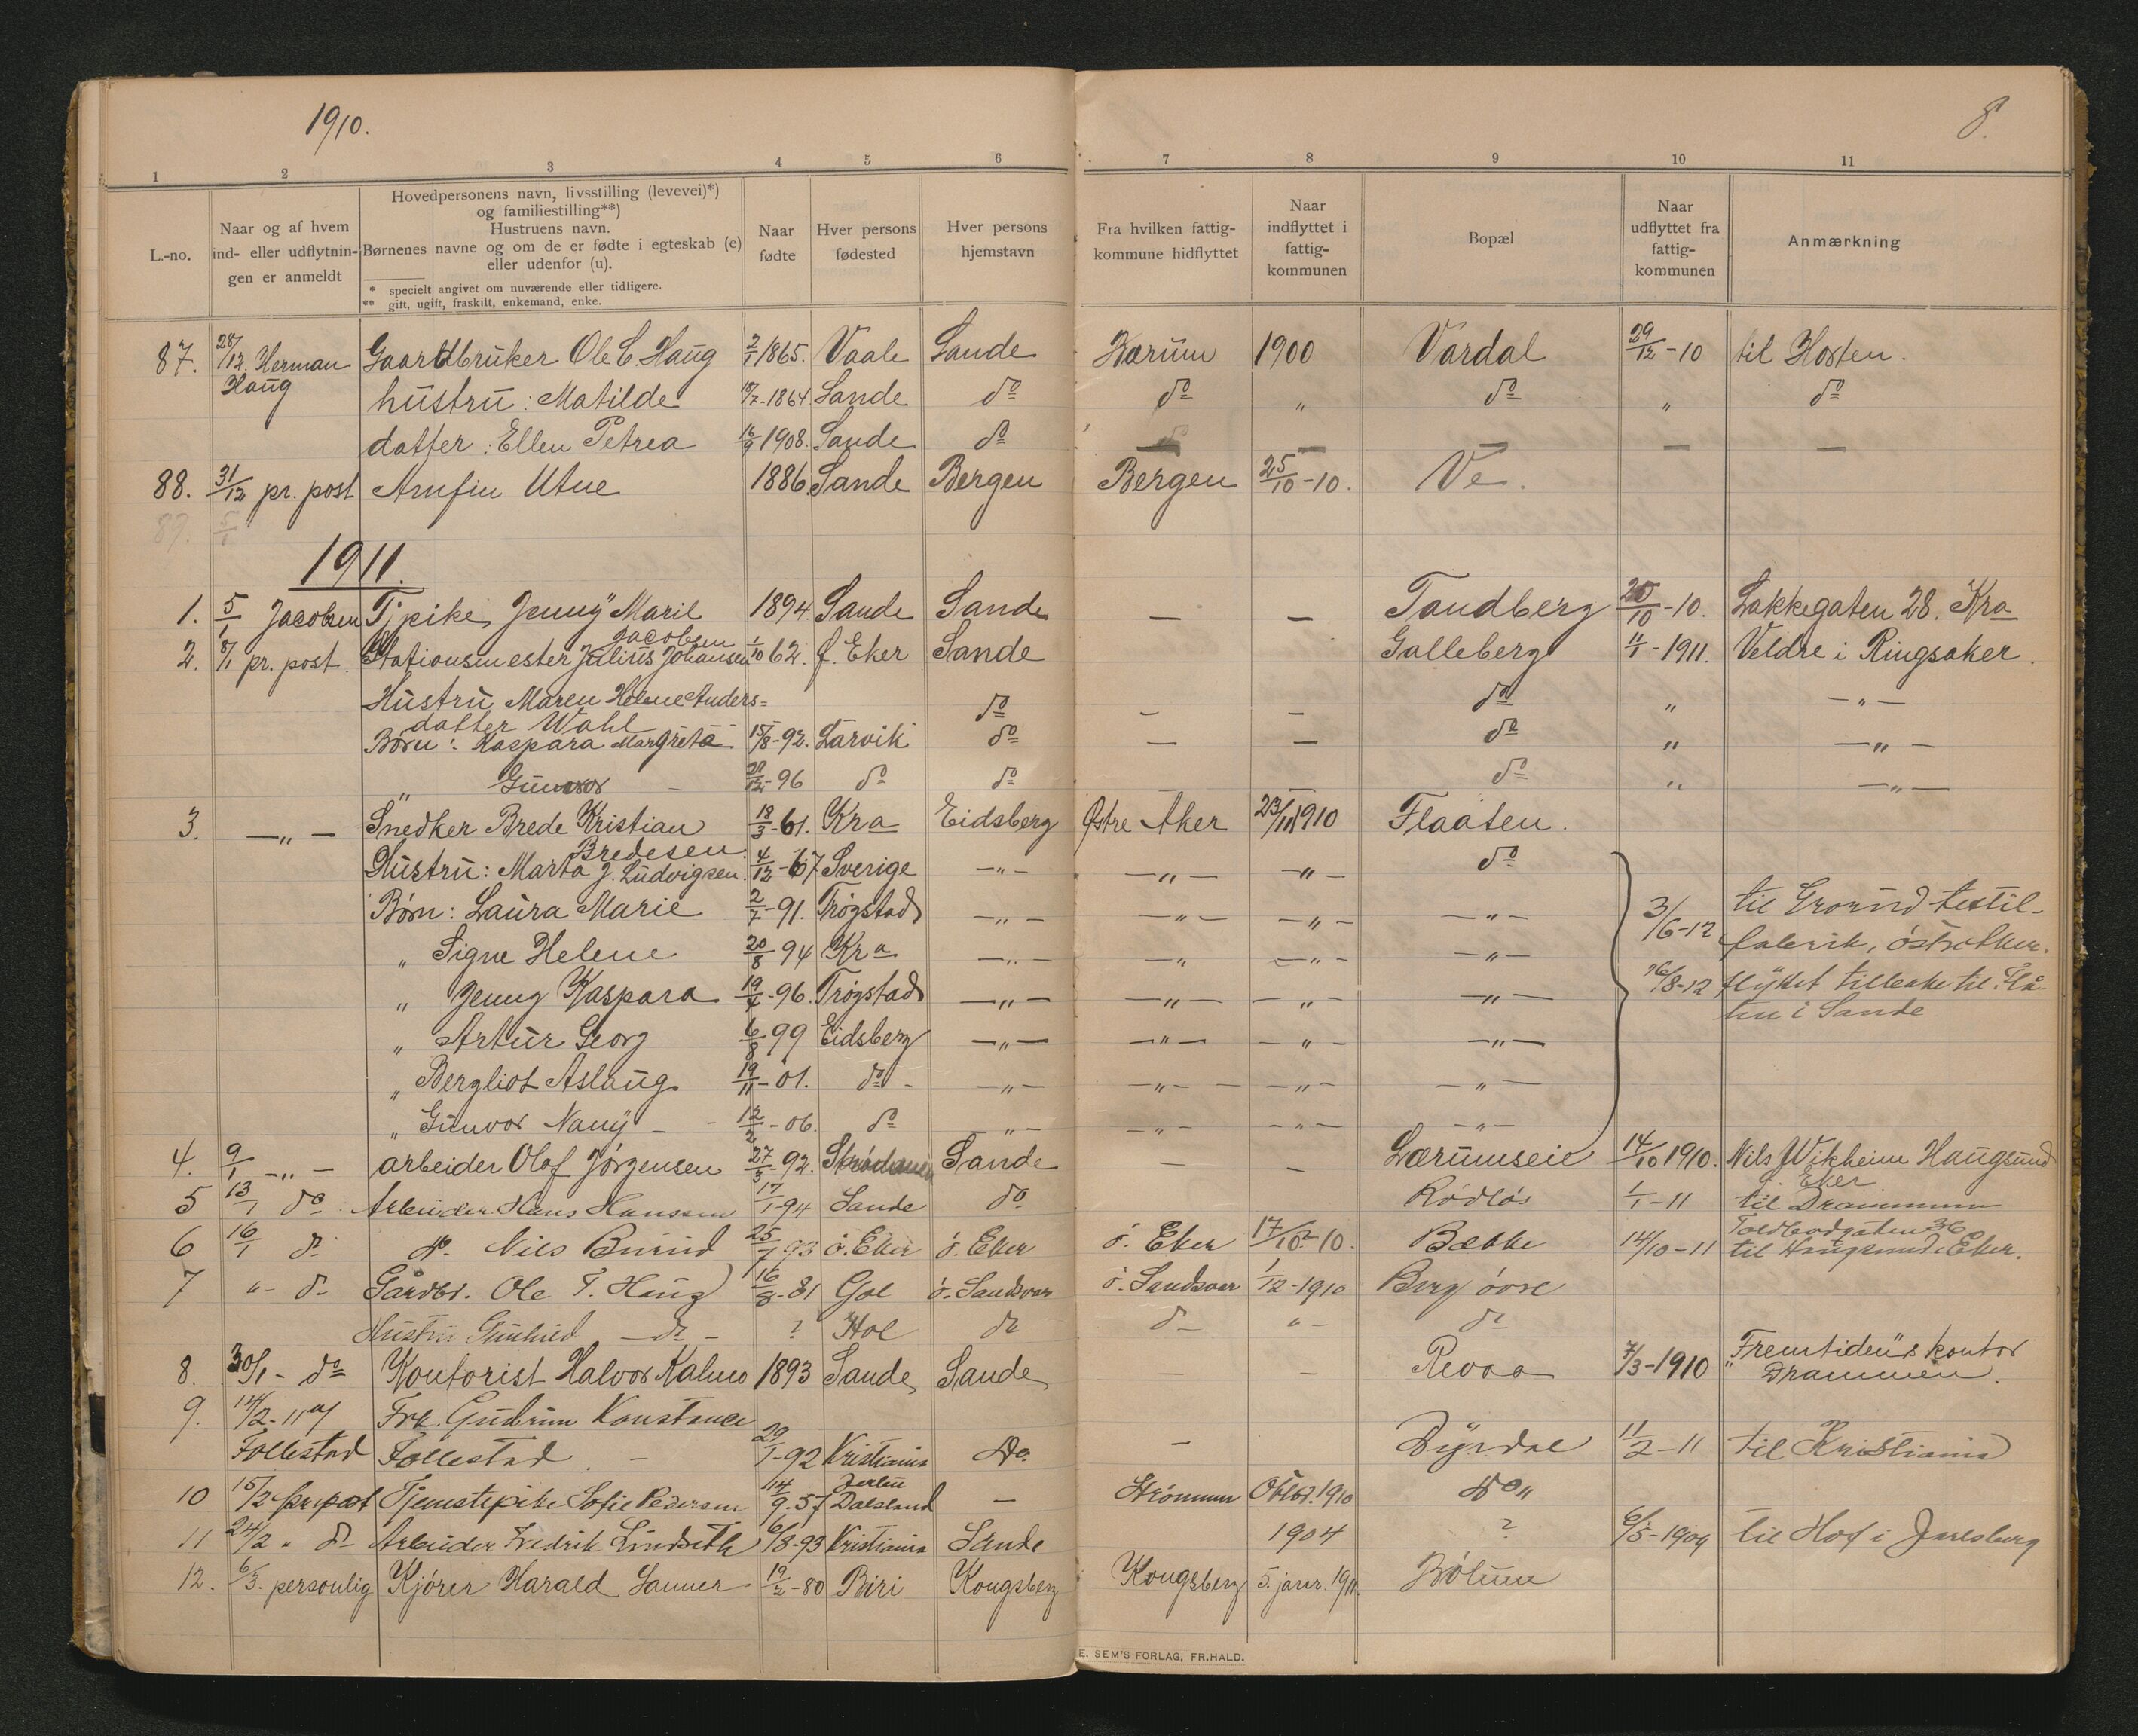 1910.
8.
1 2 3 4 5 6 7 8 9 10 11
L.-no.
Naar og af hvem
ind- eller udflytnin-
gen er anmeldt
Hovedpersonens navn, livsstilling (levevei)*)
og familiestilling**)
Hustruens navn.
Børnenes navne og om de er fødte i egteskab (e)
eller udenfor (u).
* specielt angivet om nuværende eller tidligere.
** gift, ugift, fraskilt, enkemand, enke.
Naar
fødte
Hver persons
fødested
Hver persons
hjemstavn
Fra hvilken fattig-
kommune hidflyttet
Naar
indflyttet i
fattig-
kommunen
Bopæl
Naar
udflyttet fra
fattig-
kommunen
Anmærkning
87. 28/12 Herman Gaardbruker Ole C. Haug 2/1 1865. Vaale Sande Bærum 1900 Vardal 29/12-10 til Hosten.
Haug hustru: Matilde 1864 Sande do do " do " do
datter: Ellen Petrea 1908. Sande do — — —
88. 31/12 pr. post Arnfin Utne 1886 Sande Bergen Bergen 25/10-10. Ve.
89. 5/1
1911.
1. 5/1 Jacobsen Tjpike Jenny Maril 1894 Sande Sande — — Tandberg 20/10-10. Lakkegaten 28. Kra
2. 8/1 pr. post. Stationsmester Julius Johansen Jacobsen 1/10 62. ø. Eker Sande Galleberg 11/1-1911. Veldre i Ringsaker.
Hustru Maren Helene Anders=
datter Wahl do — — do " —"—
Børn: Kaspara Margreta 15/8-92. Larvik do — — do " —"—
" Gunvor 29/12-96 do do do " —"—
3. —"— Snedker Brede Kristian Bredesen 18/3-61. Kra Eidsberg Østre Aker 23/11 1910 Flaaten.
Hustru: Marta J. Ludvigsen. 4/12-67 Sverige —"— —"— —"— do
Børn: Laura Marie 2/7-91. Trøgstad —"— —"— —"— —"— 3/6-12 til Grorud textil-
fabrik, østre Aker.
" Signe Helene 20/8 94 Kra —"— —"— —"— —"—
" Jenny Kaspara 19/4-96. Trøgstad —"— —"— —"— —"— 16/8-12 flyttet tilbake til Flå-
ten i Sande
" Artur Georg 6/8 99 Eidsberg —"— —"— —"— —"—
" Bergliot Aslaug 19/11-01. do —"— —"— —"— —"—
" Gunvor Nany 12/2-06. do —"— —"— —"— —"—
4. 9/1 —"— arbeider Olof Jørgensen 27/3-92. Sande — — Lærumseie 14/10 1910. Nils Wikheim Haugsund
ø. Eker
5 13/1 do Arbeider Hans Hanssen 17/1-94 Sande do — Rödlös 1/1-11 til Drammen
Toldbodgaten 36
6 16/1 do do Nils Burud 25/7 93 ö. Eker ö. Eker ö. Eker 17/10-10. Bakke 14/10-11 til Haugsund i Eker.
7 "- do Gårdbr. Ole T. Haug 16/8-81 Gol ö. Sandsvær ö. Sandsvær 1/12-1910 Berg övre
Hustru Gunhild —do— ? Hol do do "— do
8. 30/1- do Kontorist Halvor Kalmo 1893 Sande Sande — — Revaa 7/3-1910 "Fremtiden"s kontor
Drammen.
9. 14/2-11 af Frk. Gudrun Konstance
Follestad Follestad 29/1-92 Kristiania Do — Dyrdal 11/2-11 til Kristiania
10 15/2 pr. post Tjenestepike Sofie Pedersen 14/9-57 Dalsland — Strömmen Oktbr. 1910 do"
11 24/2 " do Arbeider Fredrik Lindseth 6/8-93 Kristiania Sande 1904 ? 6/5-1909 til Hof i Jarlsberg
12. 6/3. personlig Kjörer Harald Sanner 19/2-80 Biri Kongsberg Kongsberg 5. janr. 1911. Bölum
E. SEM'S FORLAG, FR.HALD.